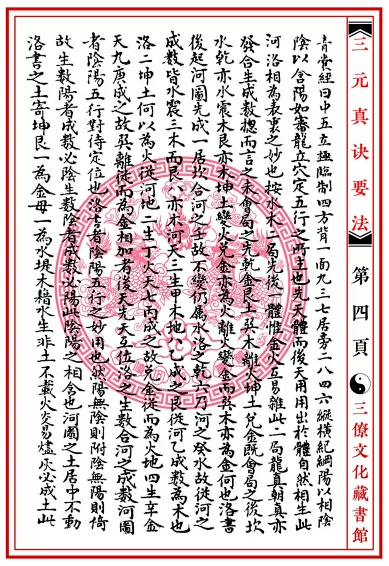 三元真诀要法
第四頁
三僚文化藏書館
青囊經曰中五立極臨制四方背一面九三七居旁二八四六縱橫紀綱陽以相陰
陰以含陽如審龍立穴定五行之所主也先天體而後天用用出於體自然相生此
河洛相為表裏之妙也按水木二局先後一體惟金火互易雖此二局龍真朝真亦
發合生成數總而言之未會局之先乾金艮土巽木離火坤土兌金既會局之後坎
水乾亦水震木艮亦木坤土變火兌金亦為火離火變金而巽木亦為金何也洛書
後起河圖先成一居坎合河之壬故不變仍屬水洛之乾六乃河之癸水故從河之
成數皆水震三木而艮八亦木河天三生甲木地八乙成之艮從河乙成數為木也
洛二坤土何以為火從河地二生丁火天七丙成之故兌金從而為火地四生辛金
天九庚成之故巽離從而為金相加者後天先天互位洛之生數合河之成數河圖
者陰陽五行對待定位也洛書者陰陽五行之妙用也然陽無陰則附陰無陽則倚
故生數陽者成數必陰生數陰者成數必陽此陰陽之相含也河圖之土居中不動
洛書之土寄坤艮一為金母一為水堤木藉水生非土不載火炎易燼灰必成土此